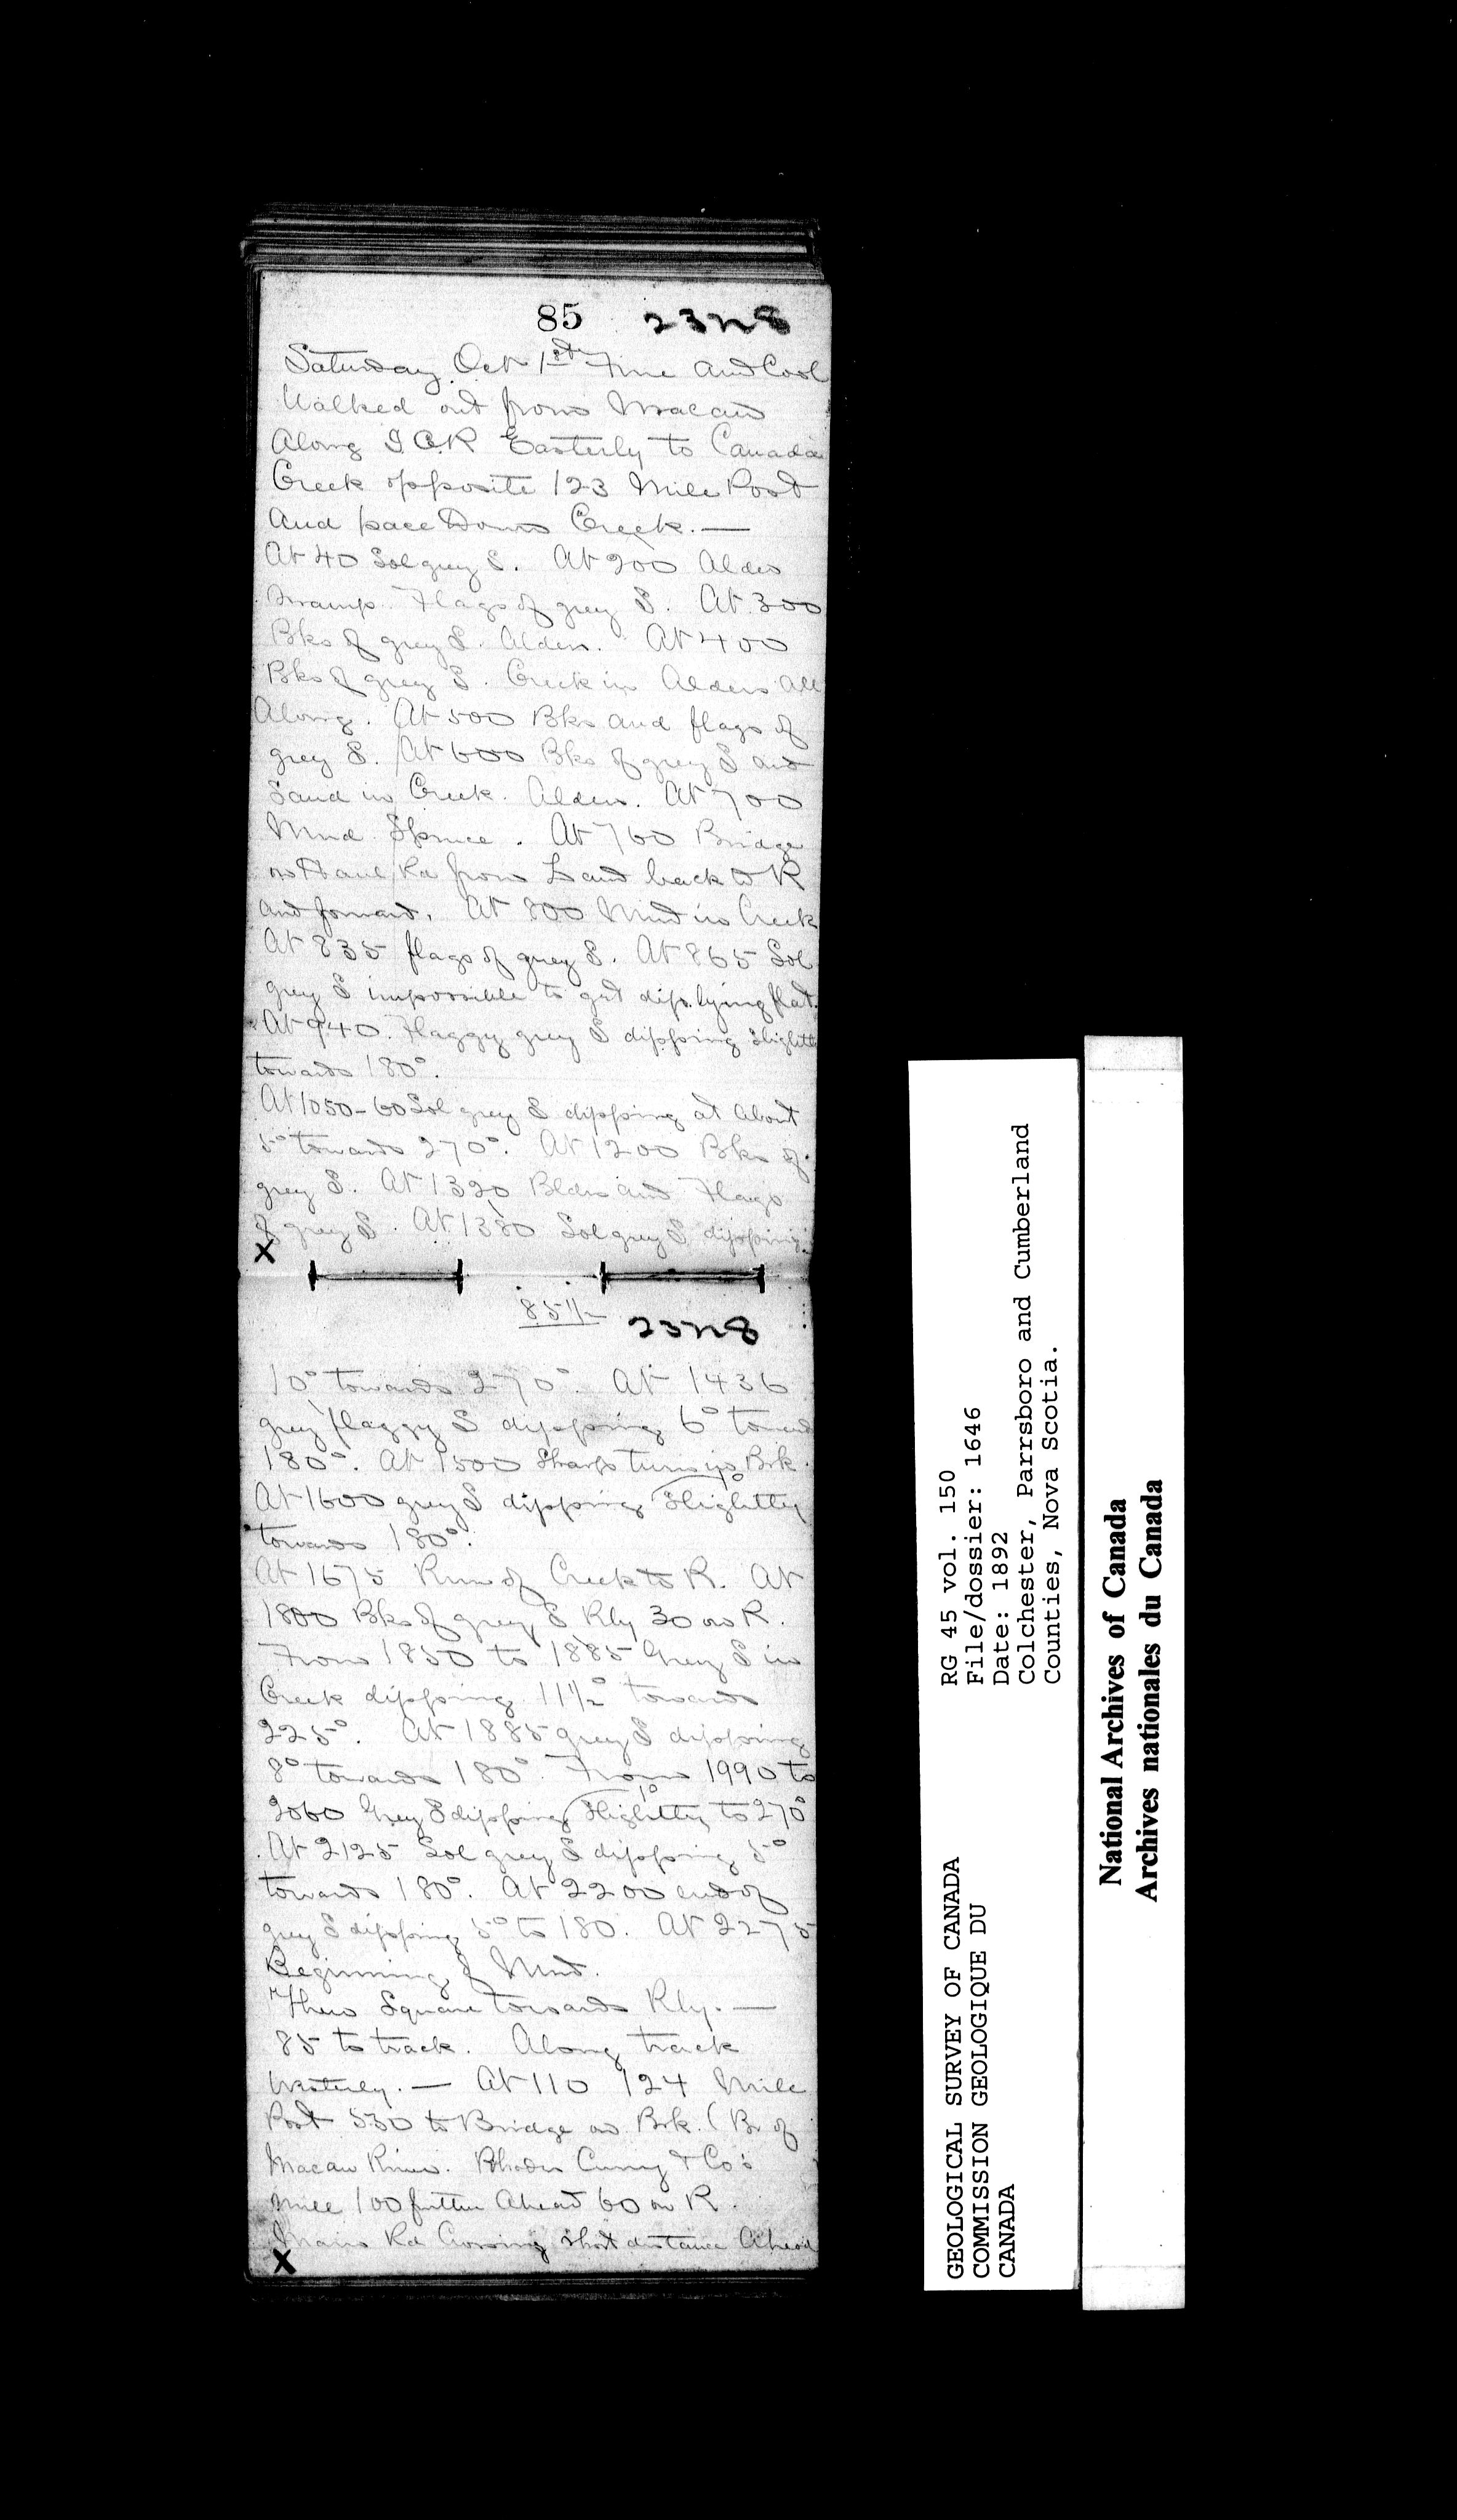 85 2328
Saturday Oct 1st Fine and Cool
Walked out from Macan
Along I.C.R Easterly to Canada
Creek opposite 123 Mile Post
And pace Down Creek. —
At 40 Sol grey S. At 200 Alder
Swamp. Flags of grey S. At 300
Bks of grey S. Alders. At 400
Bks of grey S. Creek in Alders All
Along. At 500 Bks and flags of
grey S. At 600 Bks of grey S and
Sand in Creek. Alders. At 700
Mud. Spruce. At 760 Bridge
on Rd from L and back to R
and forward. At 800 Mud in Creek
At 835 flags of grey S. At 865 Sol
grey S impossible to get dip. lying flat.
At 940. Flaggy grey S dipping Slightly
towards 180°.
At 1050-60 Sol grey S dipping at About
5° towards 270°. At 1200 Bks of
grey S. At 1320 Bldrs and Flags
of grey S. At 1380 Sol grey S dipping
X
85 1/2
2328
10° towards 270°. At 1436
grey flaggy S dipping 6° towards
180°. At 1500 Sharp turn in Brk.
At 1600 grey S dipping Slightly 1°
towards 180°.
At 1675 Run of Creek to R. At
1800 Bks of grey S Rly 30 on R.
From 1850 to 1885 Grey S in
Creek dipping 11 1/2° towards
225°. At 1885 grey S dipping
8° towards 180°. From 1990 to
2060 Grey S dipping Slightly 1° to 270°
At 2125 Sol grey S dipping 5°
towards 180°. At 2200 end of
grey S dipping 5° to 180. At 2275
Beginning of Mud.
Then Square towards Rly. —
85 to track. Along track
Westerly. — At 110 124 Mile
Post 530 to Bridge on Brk. (Br of
Macan River. Rhodes Curry & Co's
Mill 100 further Ahead 60 on R.
Main Rd Crossing short distance Ahead
X
GEOLOGICAL SURVEY OF CANADA
COMMISSION GEOLOGIQUE DU
CANADA
RG 45 vol. 150
File/dossier: 1646
Date: 1892
Colchester, Parrsboro and Cumberland
Counties, Nova Scotia.
National Archives of Canada
Archives nationales du Canada